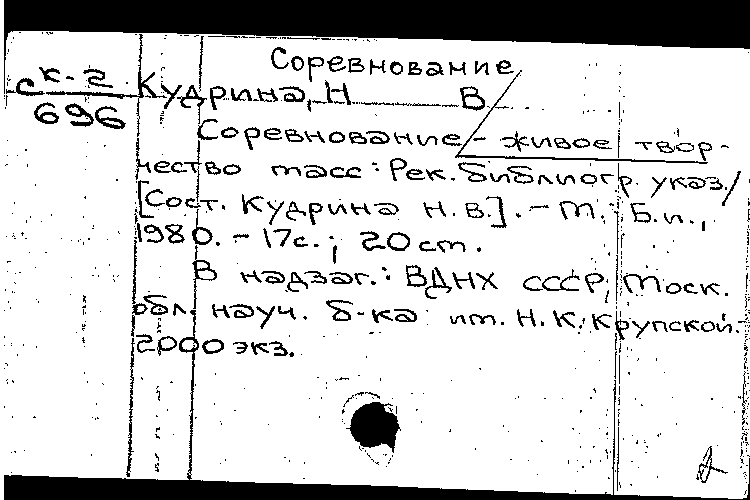 Соревнование
ск-2 Кудрина, Н В
696
Соревнование - живое твор-
чество масс: Рек. библиогр. указ./
[Сост. Кудрина Н.В.]. - М.: Б.и.,
1980. - 17с.; 20 ст.
В надзаг.: ВДНХ СССР, Моск.
обл. науч. б-ка им. Н.К. Крупской. -
2000 экз.